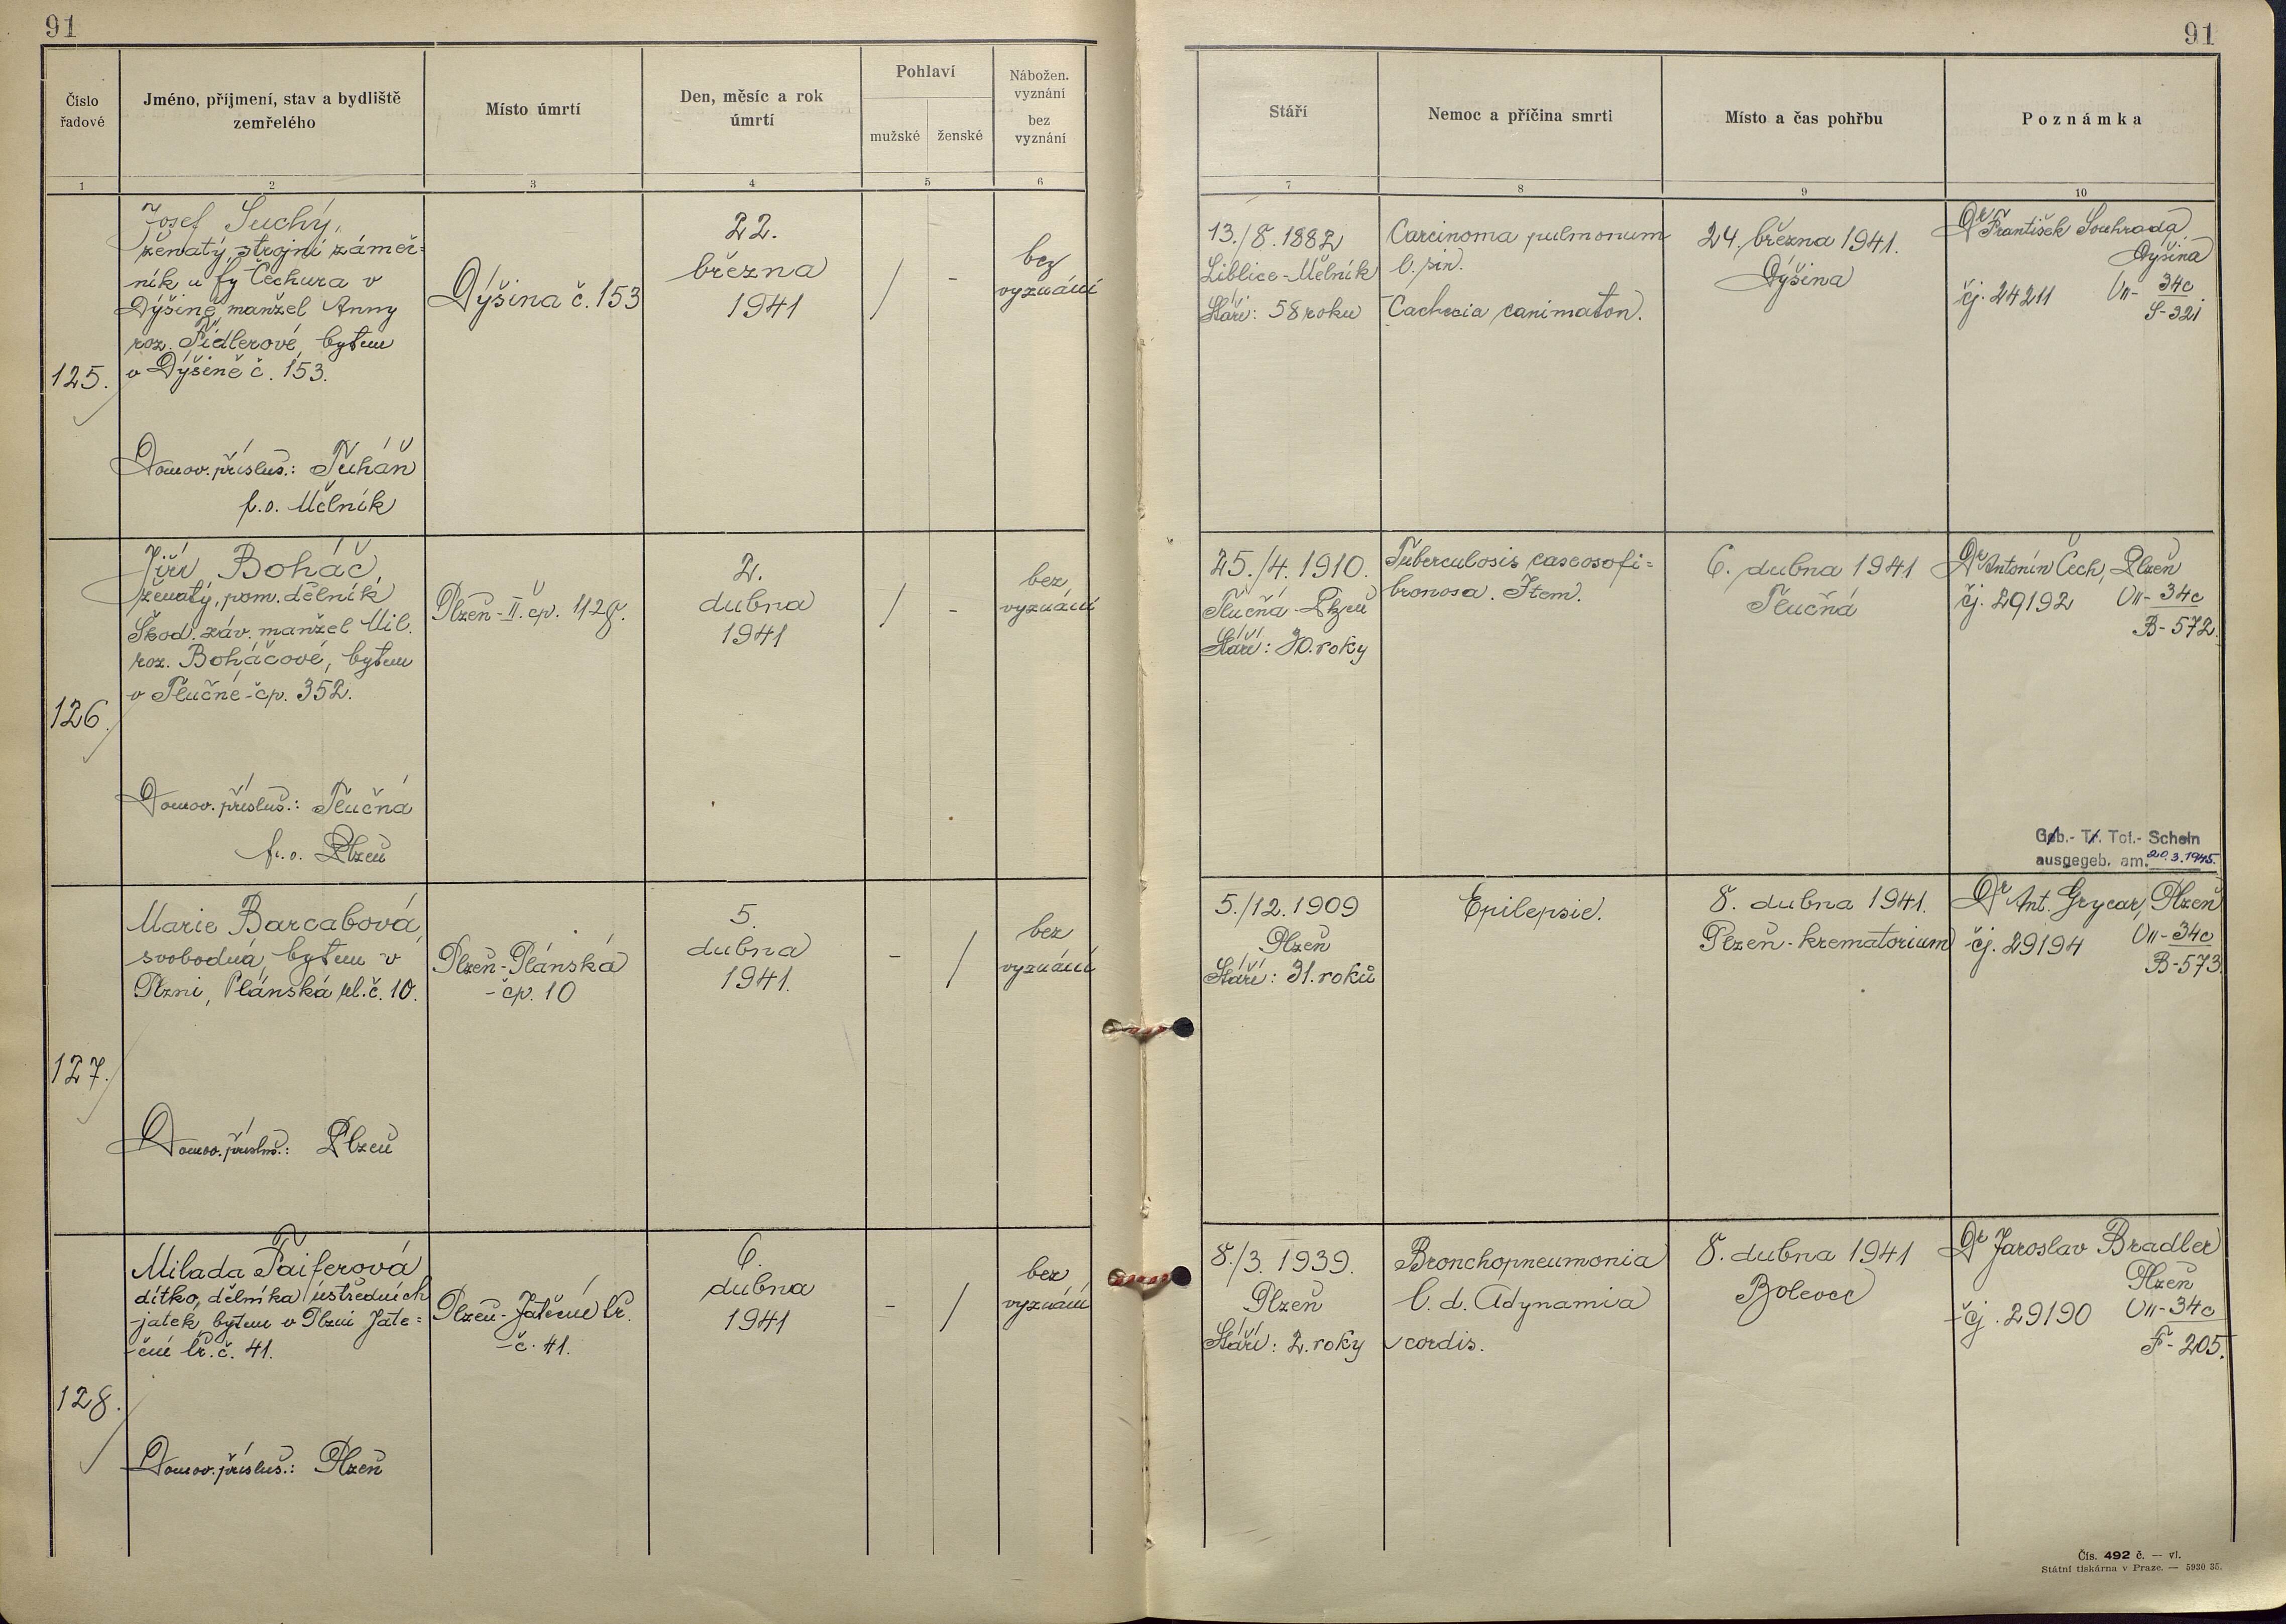 91
91
Číslo
řadové
Jméno, příjmení, stav a bydliště
zemřelého
Místo úmrtí
Den, měsíc a rok
úmrtí
Pohlaví
mužské
ženské
Nábožen.
vyznání
bez
vyznání
Stáří
Nemoc a příčina smrti
Místo a čas pohřbu
Poznámka
1
2
3
4
5
6
7
8
9
10
125.
Josef Suchý,
ženatý, strojní zámeč-
ník u fy Čechura v
Dýšině, manžel Anny
roz. Šidlerové, bytem
v Dýšině č. 153.
Domov. přísluš.: Tuháň
p.o. Mělník
Dýšina č. 153
22.
března
1941
/
-
bez
vyznání
13./8. 1882
Liblice-Mělník
Stáří: 58 roku
Carcinoma pulmonum
l. sin.
24. března 1941.
Dýšina
Dr František Souhrada
Dýšina
čj. 24211 VII-34c
S-321
126.
Jiří Boháč,
ženatý, pom. dělník
Škod. záv. manžel Mil.
roz. Boháčové, bytem
v Tlučné-čp. 352.
Domov. přísluš.: Tlučná
p.o. Plzeň
Plzeň-II. čp. 1128.
2.
dubna
1941
/
-
bez
vyznání
25./4. 1910.
Tlučná-Plzeň
Stáří: 30. roky
Tuberculosis caseosofi-
bronosa. Item.
6. dubna 1941
Tlučná
Dr Antonín Čech, Plzeň
čj. 29192 VII-34c
B-572.
Geb.- Tr. Tot.- Schein
ausgegeb. am. 20.3.1945.
127.
Marie Barcabová,
svobodná, bytem v
Plzni, Plánská ul. č. 10.
Domov. přísluš.: Plzeň
Plzeň-Plánská
-čp. 10
5.
dubna
1941.
-
/
bez
vyznání
5./12. 1909
Plzeň
Stáří: 31. roků
Epilepsie.
8. dubna 1941.
Plzeň-krematorium
Dr Ant. Grycar, Plzeň
čj. 29194 VII-34c
B-573
128.
Milada Faiferová
dítko, dělníka ústředních
jatek, bytem v Plzni Jate-
ční tř. č. 41.
Domov. přísluš.: Plzeň
Plzeň-Jateční tř.
-č. 41.
6.
dubna
1941
-
/
bez
vyznání
8./3. 1939.
Plzeň
Stáří: 2. roky
Bronchopneumonia
l. d. Adynamia
cordis.
8. dubna 1941
Bolevec
Dr Jaroslav Bradler
Plzeň
čj. 29190 VII-34c
F-205.
Čís. 492 č. — vl.
Státní tiskárna v Praze. — 5930 35.